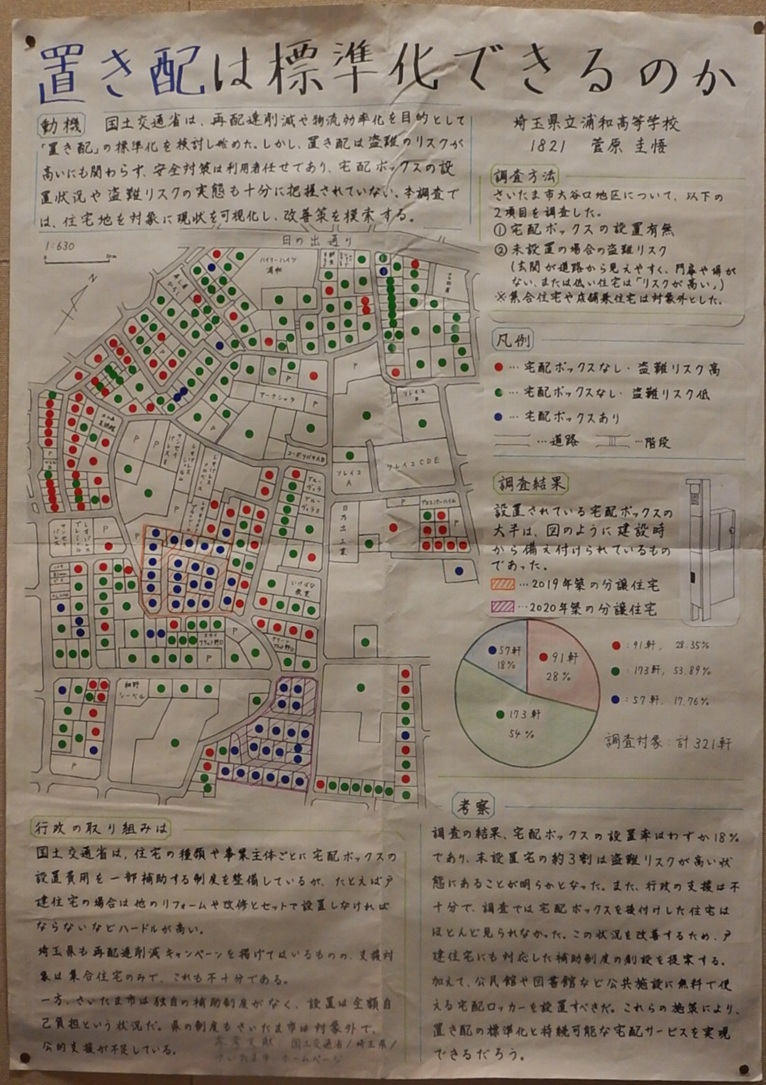 置き配は標準化できるのか
動機 国土交通省は、再配達削減や物流効率化を目的として
「置き配」の標準化を検討し始めた。しかし、置き配は盗難のリスクが
高いにも関わらず、安全対策は利用者任せであり、宅配ボックスの設
置状況や盗難リスクの実態も十分に把握されていない。本調査で
は、住宅地を対象に現状を可視化し、改善策を模索する。
埼玉県立浦和高等学校
1821 菅原 圭悟
調査方法
さいたま市大谷口地区について、以下の
2項目を調査した。
① 宅配ボックスの設置有無
② 未設置の場合の盗難リスク
(玄関が道路から見えやすく、門扉や塀が
ない、または低い住宅は「リスクが高い」)
※集合住宅や店舗兼住宅は対象外とした。
凡例
…宅配ボックスなし・盗難リスク高
…宅配ボックスなし・盗難リスク低
…宅配ボックスあり
…道路 …階段
調査結果
設置されている宅配ボックスの
大半は、図のように建設時
から備え付けられているもの
であった。
…2019年築の分譲住宅
…2020年築の分譲住宅
57軒
18%
91軒
28%
173軒
54%
:91軒, 28.35%
:173軒, 53.89%
:57軒, 17.76%
調査対象:計321軒
1:630
N
日の出通り
ハイツ
浦和
P
アーケシャラ
コーポ
プレイス
B
プレイス
A
プレイスCDE
日乃出工業
いけばな
教室
細野
シーベル
行政の取り組みは
国土交通省は、住宅の種類や事業主体ごとに宅配ボックスの
設置費用を一部補助する制度を整備しているが、たとえば戸
建住宅の場合は他のリフォームや改修とセットで設置しなければ
ならないなどハードルが高い。
埼玉県も再配達削減キャンペーンを掲げてはいるものの、支援対
象は集合住宅のみで、これも不十分である。
一方、さいたま市は独自の補助制度がなく、設置は全額自
己負担という状況だ。県の制度もさいたま市は対象外で、
公的支援が不足している。
参考文献 国土交通省/埼玉県/
さいたま市 ホームページ
考察
調査の結果、宅配ボックスの設置率はわずか18%
であり、未設置宅の約3割は盗難リスクが高い状
態にあることが明らかとなった。また、行政の支援は不
十分で、調査では宅配ボックスを後付けした住宅は
ほとんど見られなかった。この状況を改善するため、戸
建住宅にも対応した補助制度の創設を提案する。
加えて、公民館や図書館など公共施設に無料で使
える宅配ロッカーを設置すべきだ。これらの施策により、
置き配の標準化と持続可能な宅配サービスを実現
できるだろう。